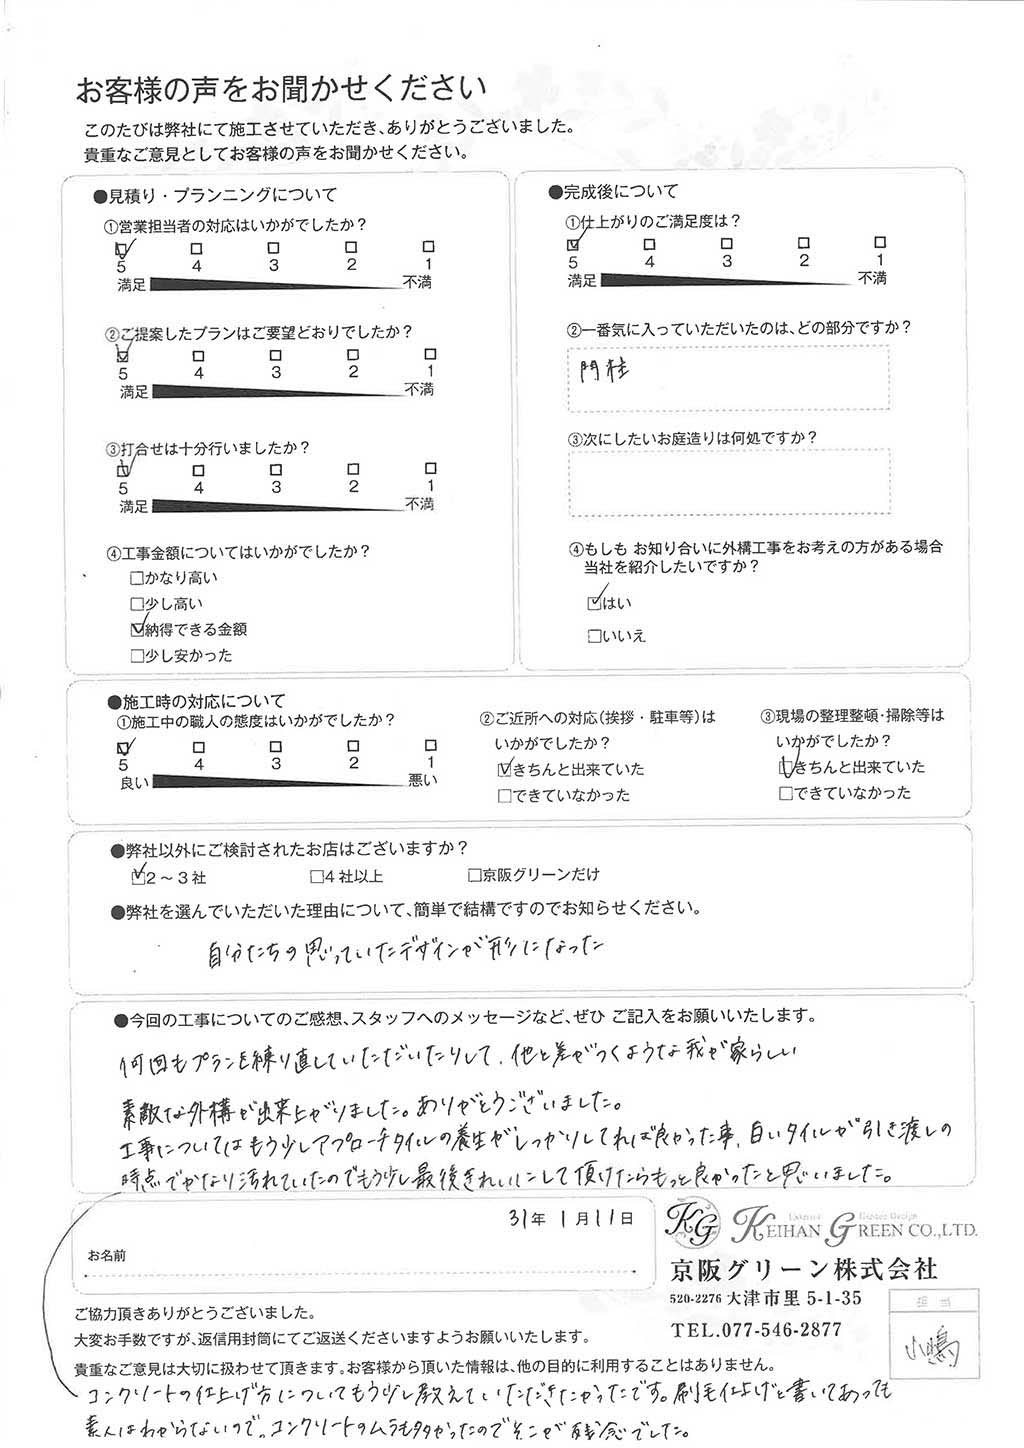 お客様の声をお聞かせください
このたびは弊社にて施工させていただき、ありがとうございました。
貴重なご意見としてお客様の声をお聞かせください。
●見積り・プランニングについて
①営業担当者の対応はいかがでしたか？
5 4 3 2 1
満足 不満
②ご提案したプランはご要望どおりでしたか？
5 4 3 2 1
満足 不満
③打合せは十分行いましたか？
5 4 3 2 1
満足 不満
④工事金額についてはいかがでしたか？
□かなり高い
□少し高い
☑納得できる金額
□少し安かった
●完成後について
①仕上がりのご満足度は？
5 4 3 2 1
満足 不満
②一番気に入っていただいたのは、どの部分ですか？
門柱
③次にしたいお庭造りは何処ですか？
④もしも お知り合いに外構工事をお考えの方がある場合
当社を紹介したいですか？
☑はい
□いいえ
●施工時の対応について
①施工中の職人の態度はいかがでしたか？
5 4 3 2 1
良い 悪い
②ご近所への対応（挨拶・駐車等）は
いかがでしたか？
☑きちんと出来ていた
□できていなかった
③現場の整理整頓・掃除等は
いかがでしたか？
☑きちんと出来ていた
□できていなかった
●弊社以外にご検討されたお店はございますか？
☑2～3社 □4社以上 □京阪グリーンだけ
●弊社を選んでいただいた理由について、簡単で結構ですのでお知らせください。
自分たちの思っていたデザインが形になった
●今回の工事についてのご感想、スタッフへのメッセージなど、ぜひ ご記入をお願いいたします。
何回もプランを練り直していただいたりして、他と差がつくような我が家らしい
素敵な外構が出来上がりました。ありがとうございました。
工事についてはもう少しアプローチタイルの養生がしっかりしてれば良かった事、白いタイルが引き渡しの
時点でかなり汚れていたのでもう少し最後きれいにして頂けたらもっと良かったと思いました。
31年 1月11日
お名前
KG KEIHAN GREEN CO.,LTD.
京阪グリーン株式会社
520-2276 大津市里 5-1-35
TEL.077-546-2877
担当
小嶋
ご協力頂きありがとうございました。
大変お手数ですが、返信用封筒にてご返送くださいますようお願いいたします。
貴重なご意見は大切に扱わせて頂きます。お客様から頂いた情報は、他の目的に利用することはありません。
コンクリートの仕上げ方についてもう少し教えていただきたかったです。刷毛仕上げと書いてあっても
素人はわからないので。コンクリートのムラも多かったのでそこが残念でした。